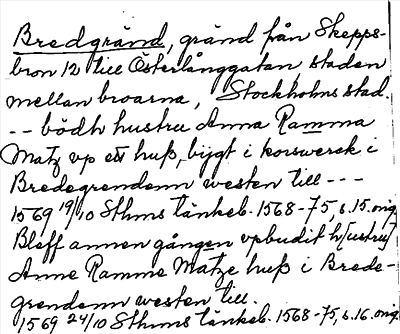 Bredgränd, gränd från Skepps-
bron 12 till Österlånggatan, staden
mellan broarna, Stockholms stad.
-- bödh hustru Anna Ramma
Matz vp ett huß, bijgt i korswerck i
Bredegrendenn westen till ---
1569 19/10 Sthms tänkeb. 1568-75, s. 15. orig.
Bleff annen gången vpbudit h[ustru]
Anne Ramme Matze huß i Brede-
grendenn westen till.
1569 24/10 Sthms tänkeb. 1568-75, s. 16. orig.